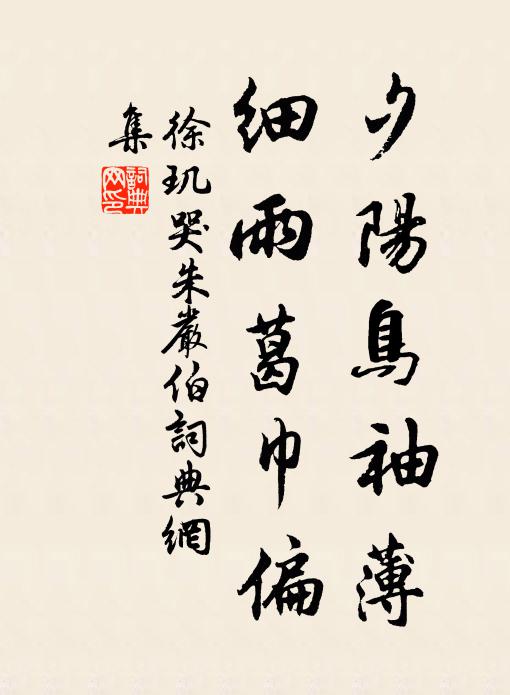 夕陽鳥袖薄
細雨葛巾偏
徐玑哭朱嚴伯詞典網
集
詞典網印